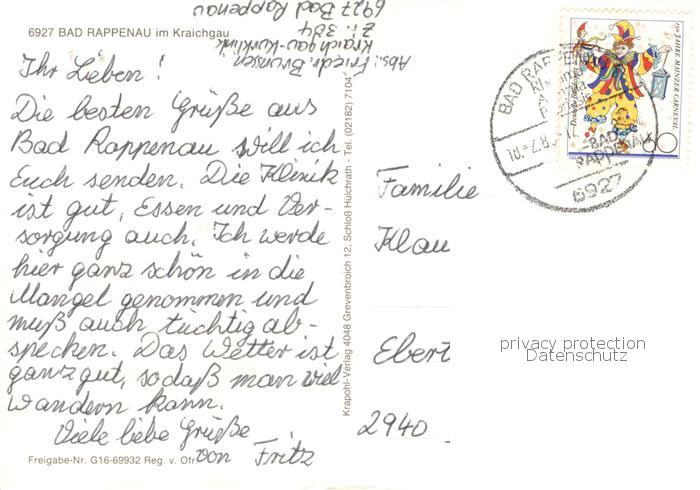 6927 BAD RAPPENAU im Kraichgau
Abs: Friedr. Brunsen
Kraichgau-Kurklinik
Zi. 384
6927 Bad Rappenau
Ihr Lieben!
Die besten Grüße aus
Bad Rappenau will ich
Euch senden. Die Klinik
ist gut, Essen und Ver-
sorgung auch. Ich werde
hier ganz schön in die
Mangel genommen und
muß auch tüchtig ab-
specken. Das Wetter ist
ganz gut, sodaß man viel
wandern kann.
Viele liebe Grüße
von Fritz
Freigabe-Nr. G16-69932 Reg. v. Ofr
Krapohl-Verlag 4048 Grevenbroich 12, Schloß Hülchrath - Tel. (02182) 7104
150 JAHRE MAINZER CARNEVAL
60
BAD RAPPENAU
BAD
RAPPENAU
6927
Familie
Klau
Ebert
2940
privacy protection
Datenschutz